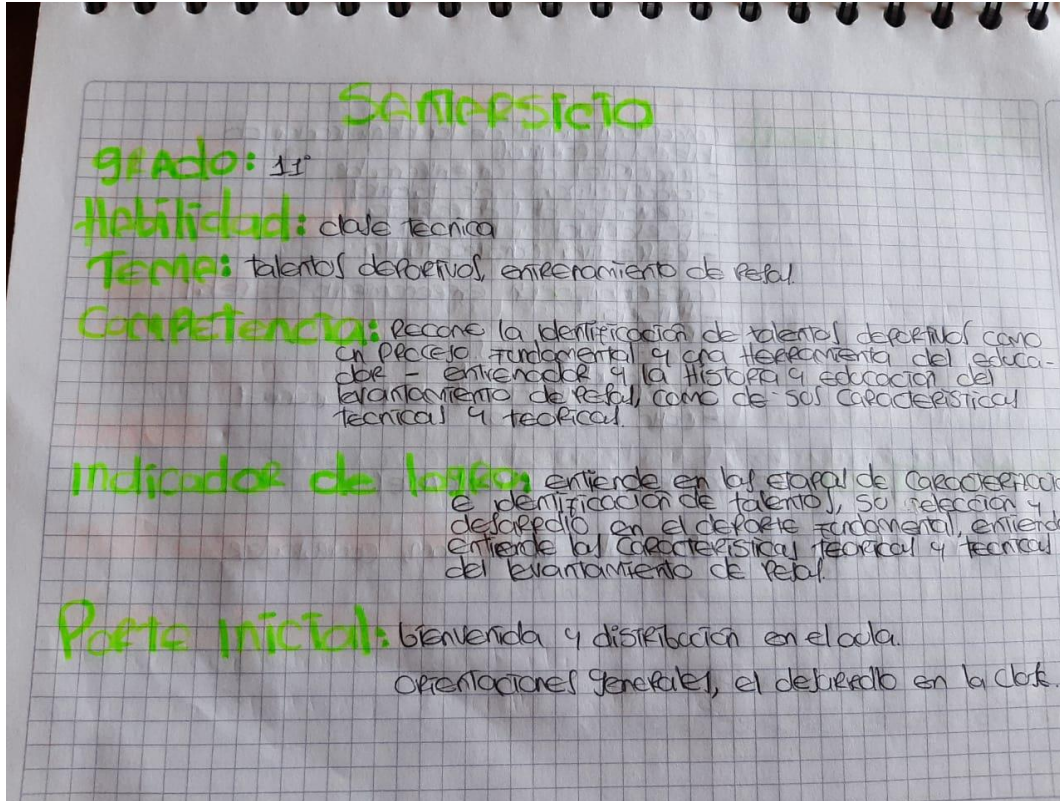 Santarsicio
grado: 11°
Habilidad: clase tecnica
Tema: talentos deportivos, entrenamiento de pesas.
Competencia: Recone la identificación de talentos deportivos como
un proceso fundamental y una herramienta del educa-
dor - entrenador y la Historia y educación del
levantamiento de pesas, como de sus caracteristicas
tecnicas y teoricas.
Indicador de logro: entiende en las etapas de caracterfcaci
e identificación de talentos, su selección y
desarrollo en el deporte fundamental, entiend
entiende las caracteristicas teoricas y tecnicas
del levantamiento de pesas.
Parte inicial: bienvenida y distribución en el aula.
orientaciones generales, el desarrollo en la clase.